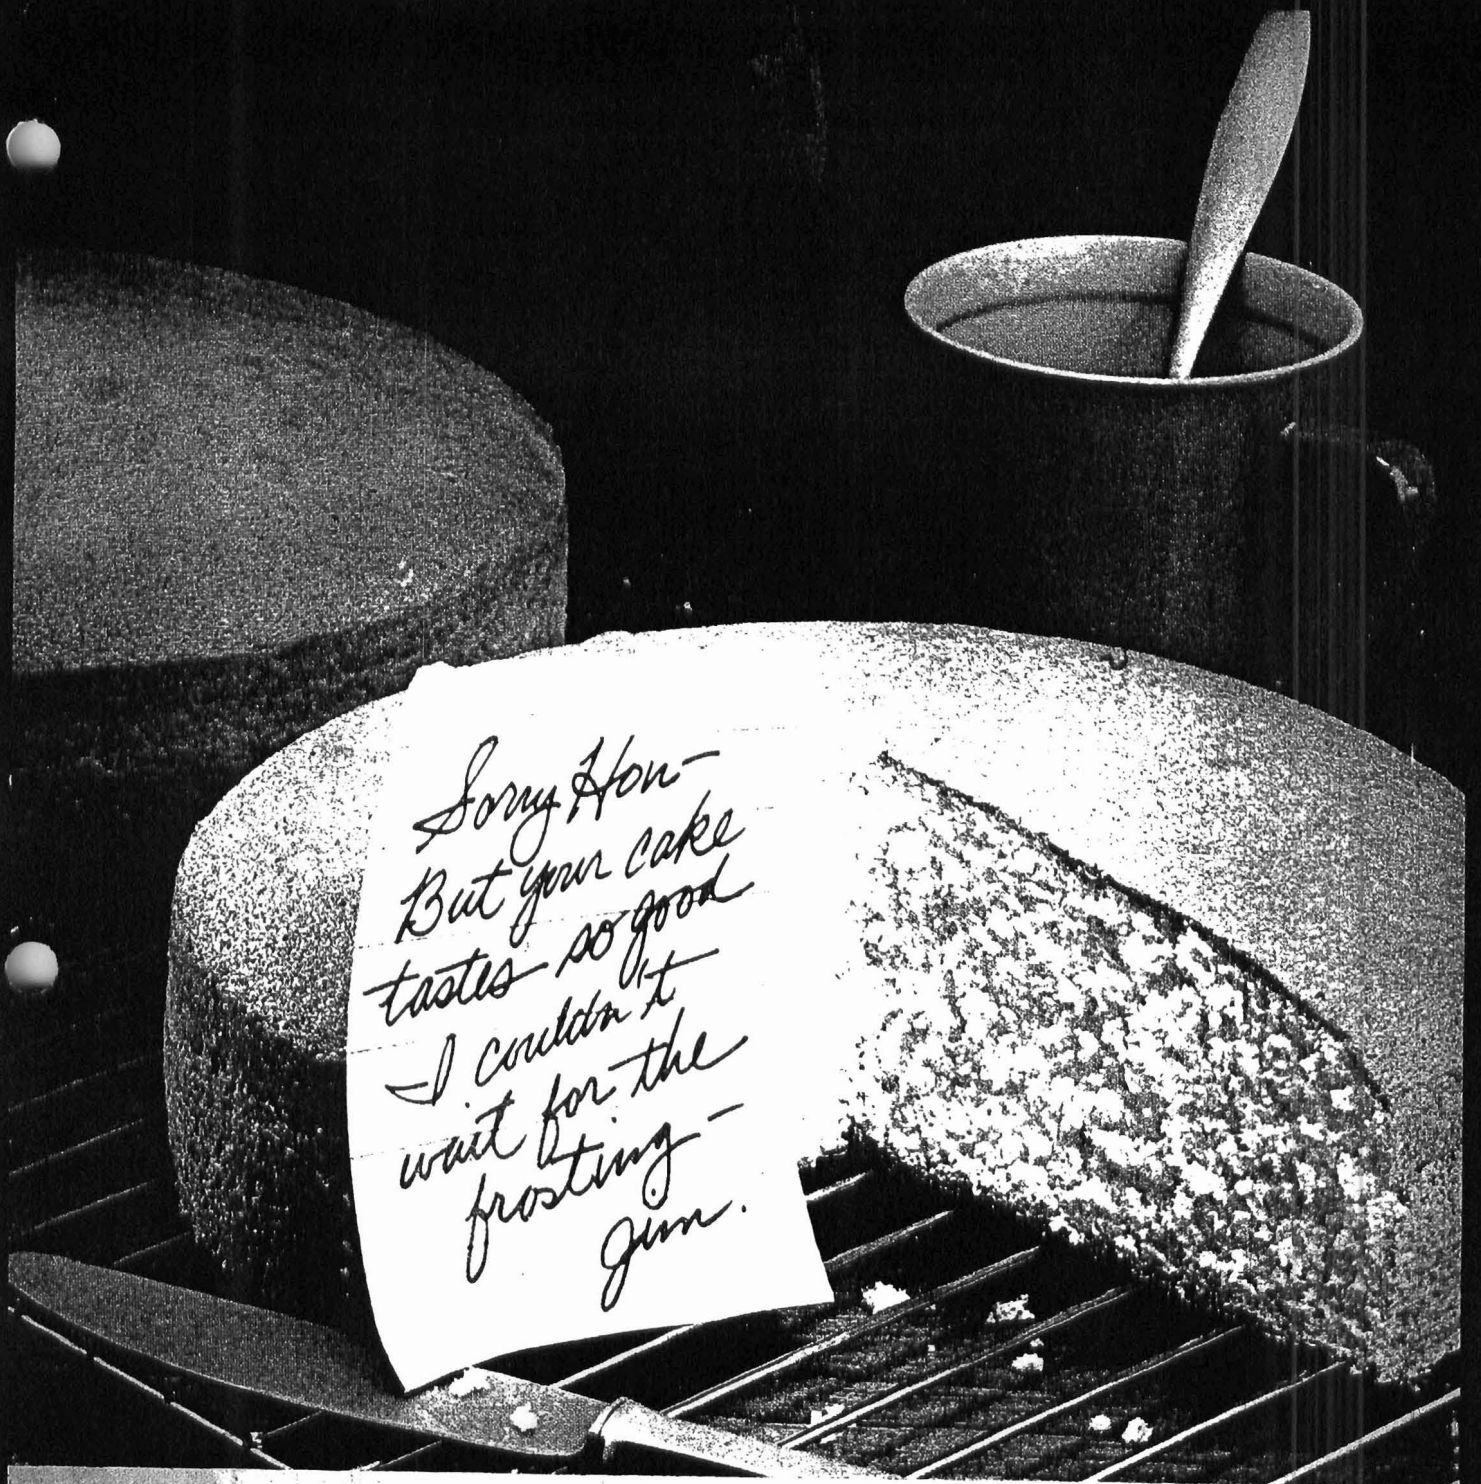 Sorry Hon-
But your cake
tastes so good
I couldn't
wait for the
frosting-
Jim.